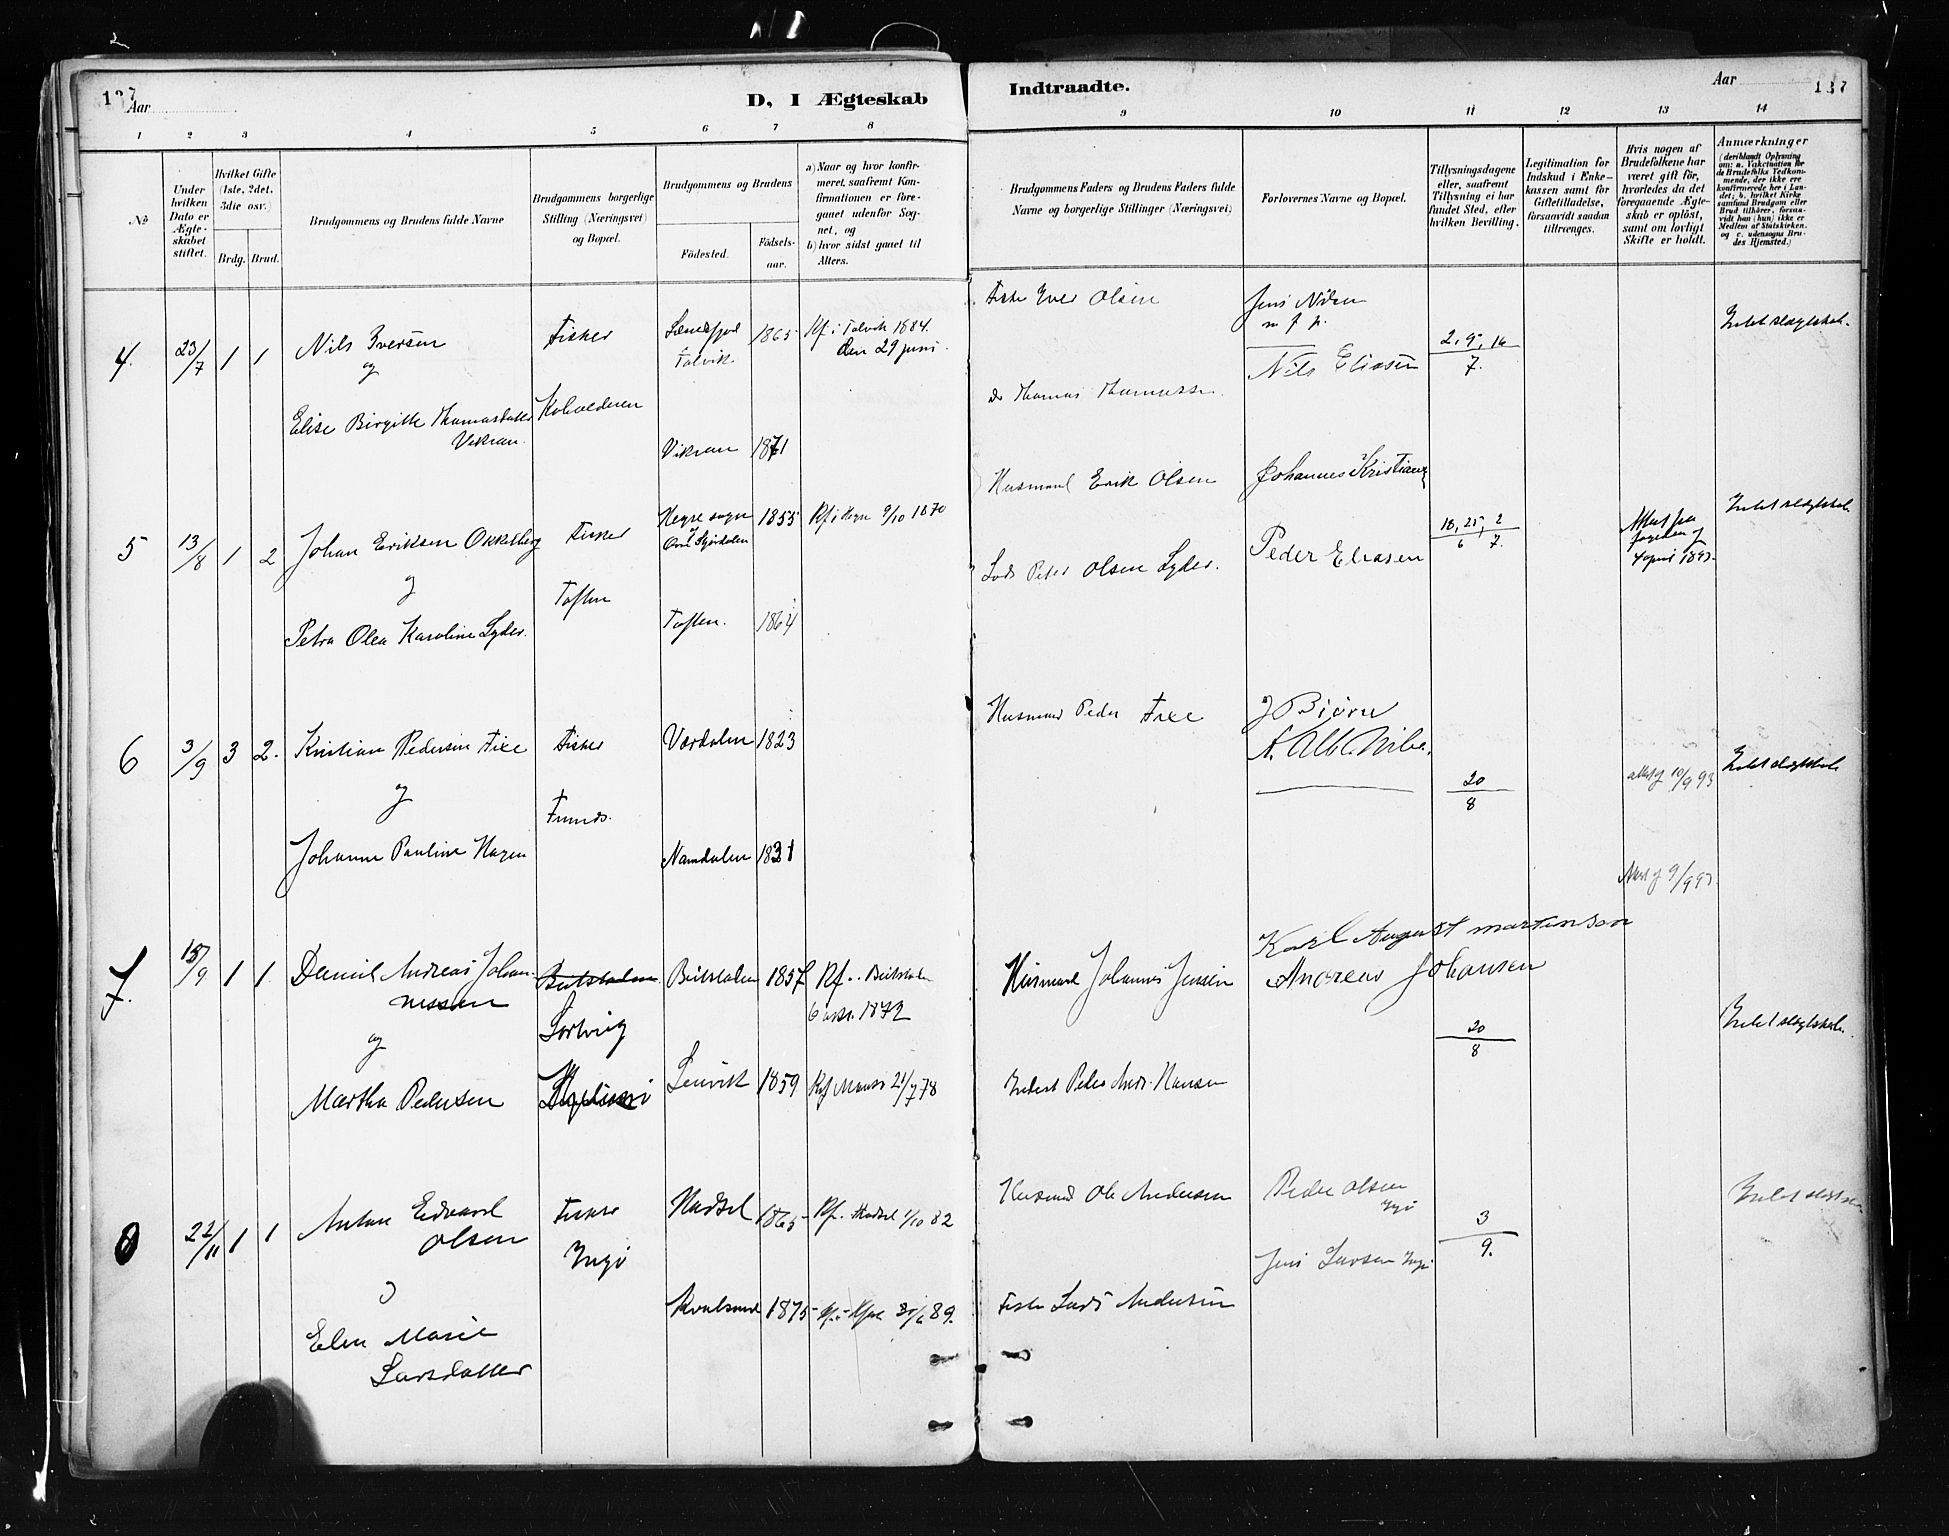 137
Aar
D, I Ægteskab
Indtraadte.
Aar
137
1 2 3 4 5 6 7 8 9 10 11 12 13 14
No
Under hvilken Dato er Ægteskabet stiftet.
Hvilket Gifte (1ste, 2det, 3die osv.)
Brdg. Brud.
Brudgommens og Brudens fulde Navne
Brudgommens borgerlige Stilling (Næringsvei) og Bopæl.
Brudgommens og Brudens
Fødested.
Fødselsaar.
a) Naar og hvor konfirmeret, saafremt Konfirmationen er foregaaet udenfor Sognet, og
b) hvor sidst gaaet til Alters.
Brudgommens Faders og Brudens Faders fulde Navne og borgerlige Stillinger (Næringsvei)
Forlovernes Navne og Bopæl.
Tillysningsdagene eller, saafremt Tillysning ei har fundet Sted, efter hvilken Bevilling.
Legitimation for Indskud i Enkekassen samt for Giftetilladelse, forsaavidt saadan tiltrænges.
Hvis nogen af Brudefolkene har været gift før, hvorledes da det foregaaende Ægteskab er opløst, samt om lovligt Skifte er holdt.
Anmærkninger
(deriblandt Oplysning om: a. Vakcination for de Brudefolks Vedkommende, der ikke ere konfirmerede her i Landet; b. hvilket Kirkesamfund Brudgom eller Brud tilhører, forsaavidt han (hun) ikke er Medlem af Statskirken. og c. udensogns Brudes Hjemsted.)
4. 23/7 1 1 Nils Iversen
og
Elise Birgitte Thomasdatter
Vikran
Fisker
Talvik 1865 Kf. i Talvik 1884.
den 29 juni.
Vikran 1871
Fisker Iver Olsen
Do Thomas Thomassen
Jens Nilsen
Nils Eliasen
2, 9, 16
7.
Intet slægtskab.
5 13/8 1 2 Johan Eriksen Okkelberg
og
Petra Olea Karoline Lyder.
Fisker
Toften
Hegre sogn
Stjørdalen 1855 Kf. i Hegre 9/10 1870
Toften. 1864
Husmand Erik Olsen
Lods Peter Olsen Lyder.
Johannes Kristians
Peder Eliasen
18, 25, 2
6 7.
Attest fra
fogden af
4 april 1893.
Intet slægtskab.
6 3/9 3 2. Kristian Pedersen Fixe
og
Johanne Pauline Hagen
Fisker
Værdalen 1823
Namdalen 1831
Husmand Peder Fixe
J Bjørn
20
8
attest af 10/9 93
Attest af 9/9 93.
Intet slægtskab
7. 15/9 1 1. Daniel Andreas Johan-
nessen
og
Martha Pedersen
Sortvig
Beitstaden 1857 Kf. i Beitstaden
1872
Lenvik 1859 Kf Maasø 21/7 78
Husmand Johannes Jensen
Inderst Peder Andr. Hansen
Karl August Martinsen
Andreas Johansen
20
8
Intet slægtskab.
8 22/11 1 1 Anton Edvard
Olsen
og
Elen Marie
Larsdatter
Fisker
Ingø
Hadsel 1865 Kf. Hadsel 1/10 82
Kvalsund 1875 89.
Husmand Ole Andersen
Fisker Lars Andersen
Peder Olsen
Ingø
Jens Larsen Ingø
3
9.
Intet slægtskab